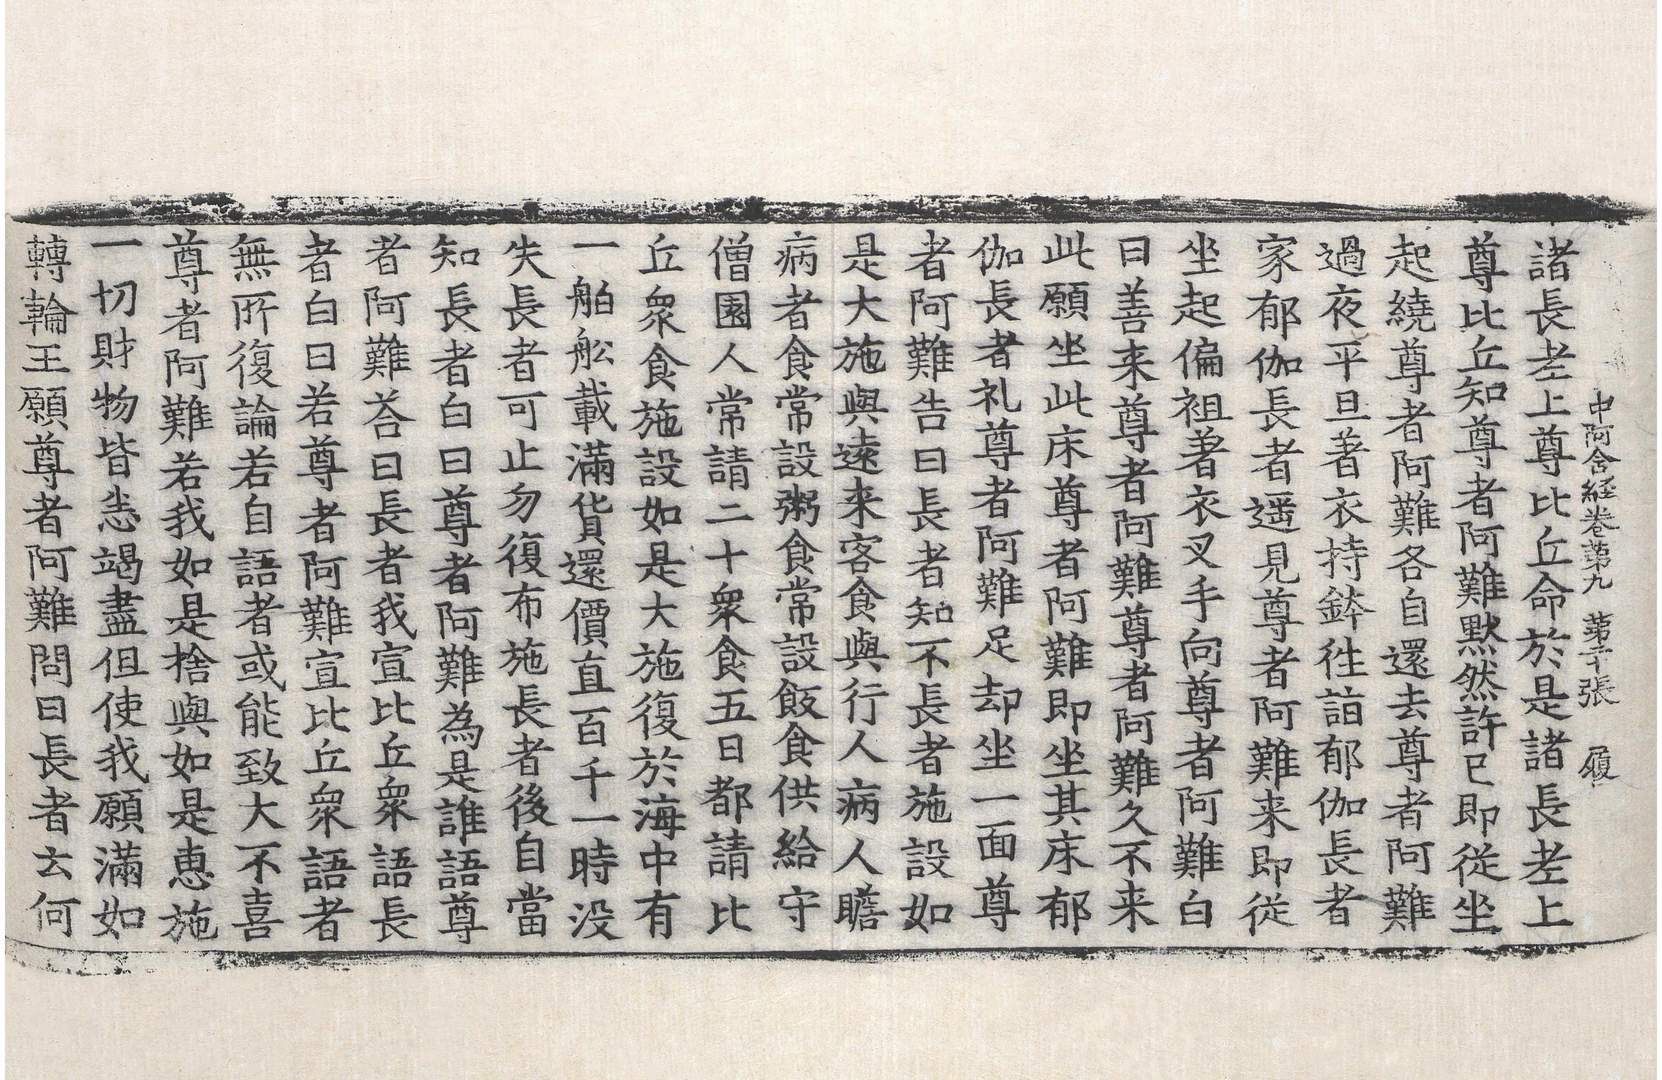 中阿含経卷第九　第二十張　履
諸長老上尊比丘命於是諸長老上
尊比丘知尊者阿難默然許已即從坐
起繞尊者阿難各自還去尊者阿難
過夜平旦著衣持鉢徃詣郁伽長者
家郁伽長者遥見尊者阿難来即從
坐起偏袒著衣叉手向尊者阿難白
曰善来尊者阿難尊者阿難久不来
此願坐此床尊者阿難即坐其床郁
伽長者礼尊者阿難足却坐一面尊
者阿難告曰長者知不長者施設如
是大施與遠来客食與行人病人瞻
病者食常設粥食常設飯食供給守
僧園人常請二十衆食五日都請比
丘衆食施設如是大施復於海中有
一舶舩載滿貨還價直百千一時没
失長者可止勿復布施長者後自當
知長者白曰尊者阿難為是誰語尊
者阿難荅曰長者我宣比丘衆語長
者白曰若尊者阿難宣比丘衆語者
無所復論若自語者或能致大不喜
尊者阿難若我如是捨與如是恵施
一切財物皆悉竭盡但使我願滿如
轉輪王願尊者阿難問曰長者云何